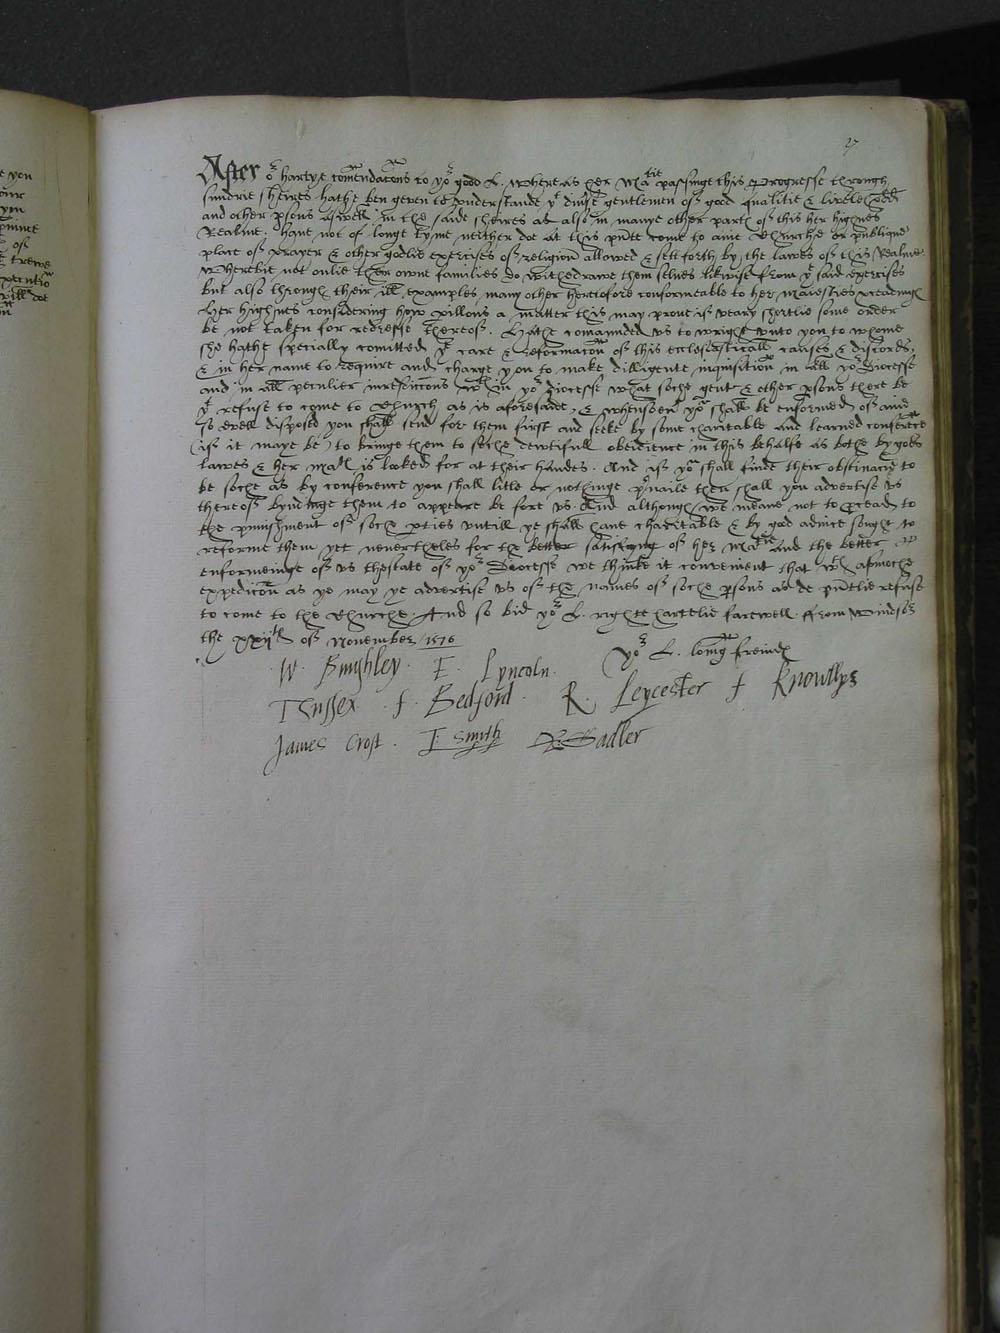 27
After or hartye comendacons to yor good L. Whereas her Matie passinge this Progresse through
sundrie sheires hathe ben geven to understande yt diuse gentlemen of good qualitie & livelehedd
and other psons aswell in the saide sheires as also in manye other parts of this her highnes
Realme. have not of longe tyme neither doe at this pnte come to anie Churche or publique
place of prayer & other godlie exercises of religion allowed & sett forth by the lawes of this Realme.
Wherebie not onlie their owne families do withedrawe them selues likwise from ye said exercises
but also through their ill examples many other heretofore conformeable to her maiesties
her highnes considering how a matter this may prove if veary shortlie some order
be not taken for redresse thereof. Hathe comaunded us to wright unto you to whome
she hathe specially comitted ye care & reformacon of this ecclesiasticall causes & discords,
& in her name to require and charge you to make dilligente inquisition in all yor diocesse
and in all peculier iurisdiccons wthin yor diocesse what soche gent & other psons there be
yt refuse to come to Church as is aforesaide, & whensoeu you shall be enformed of anie
so evell disposed you shall send for them first and seeke by some charitable and learned conference
(if it maye be) to bringe them to soche dewtifull obedience in this behalfe as bothe by gods
lawes & her Mats is looked for at their handes. And if you shall finde their obstinacie to
be soche as by conference you shall litle or nothinge pvaile then shall you advertise us
thereof byndinge them to appeare be fore us. And although we meane not to pcead to
the punishment of soche pties untill ye shall have charitable & by good advice sought to
reforme them yet neuertheles for the better satisfying of her Matie and the better
enformeinge of us thestate of yor Diocesse we thinke it convenient that wth asmoche
expedicon as ye may ye advertise us of the names of soche psons as do pntlie refuse
to come to the Churche. And so bid yor L. righte hartelie farewell. ffrom Windsor
the xxijth of November 1576
yor L. loving freinds
W. Burghley. E. Lyncoln.
T Sussex. f. Bedford. R. Leycester f Knowllys
James Croft. T. Smith R. Sadler